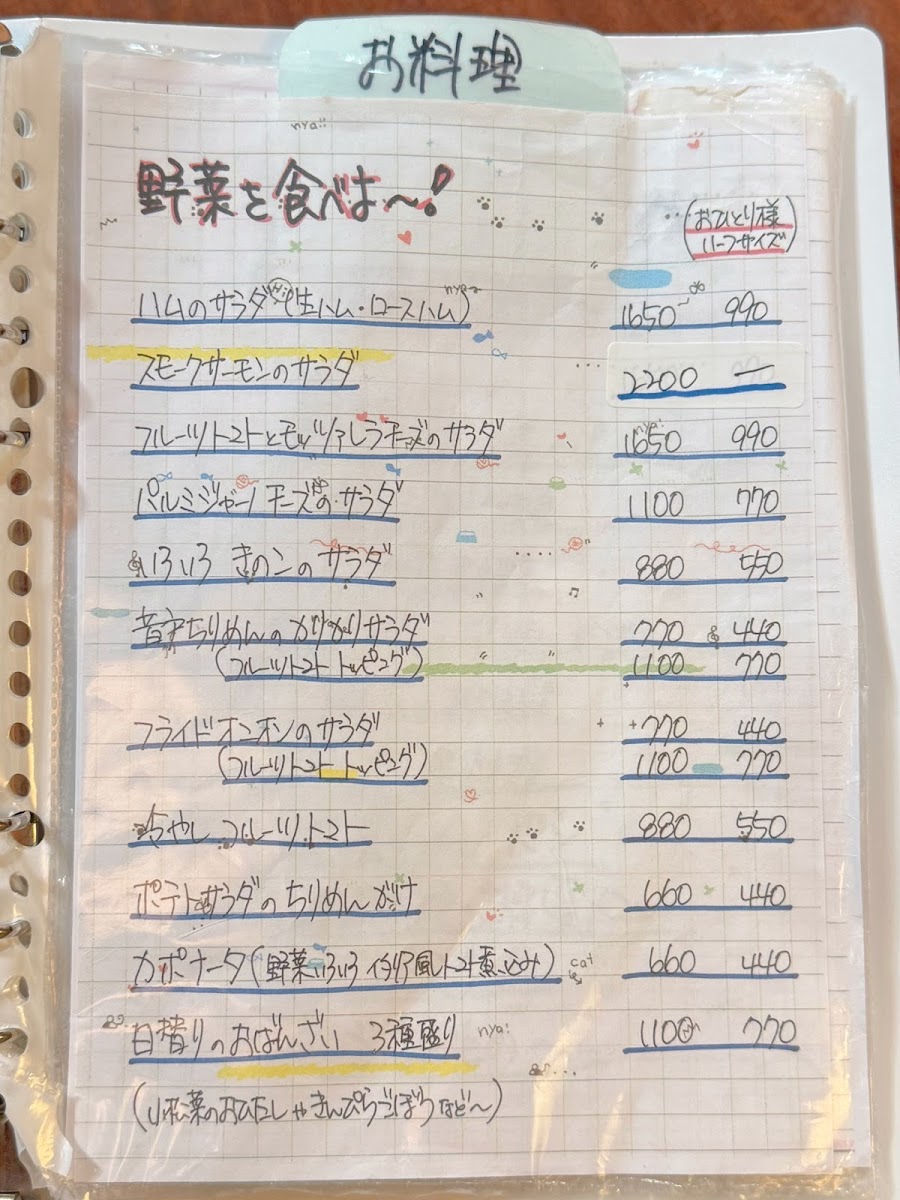 お料理
nya!!
野菜を食べよ〜!
(おひとり様
ハーフサイズ)
ハムのサラダ(生ハム・ロースハム) 1650 990
スモークサーモンのサラダ 2200 —
フルーツトマトとモッツァレラチーズのサラダ 1650 990
パルミジャーノチーズのサラダ 1100 770
いろいろ きのこのサラダ 880 550
ちりめんのかりかりサラダ 770 440
(フルーツトマト トッピング) 1100 770
フライドオニオンのサラダ 770 440
(フルーツトマト トッピング) 1100 770
冷やし フルーツトマト 880 550
ポテトサラダのちりめんがけ 660 440
カポナータ(野菜いろいろ イタリア風トマト煮込み) cat 660 440
日替りのおばんざい 3種盛り nya! 1100 770
(小松菜のおひたしやきんぴらごぼうなど〜)